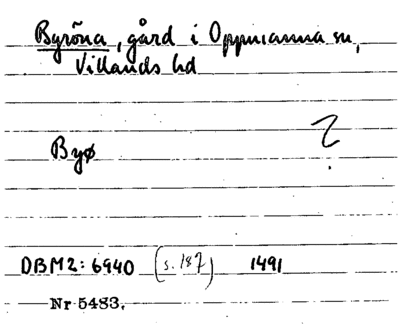 Byröna, gård i Oppmanna sn,
Villands hd
?
Byø
DBM2: 6940 (s. 187) 1491
Nr 5483.